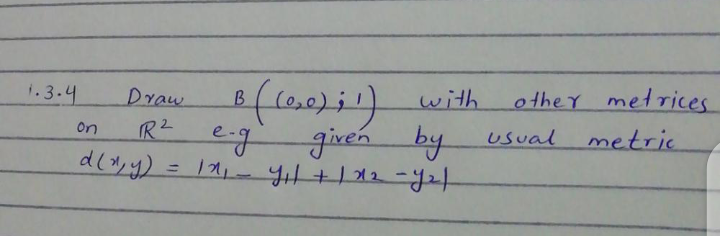 1.3.4 Draw B((0,0); 1) with other metrices
on ℝ² e-g given by usual metric
d(x,y) = |x₁ - y₁| + |x₂ - y₂|